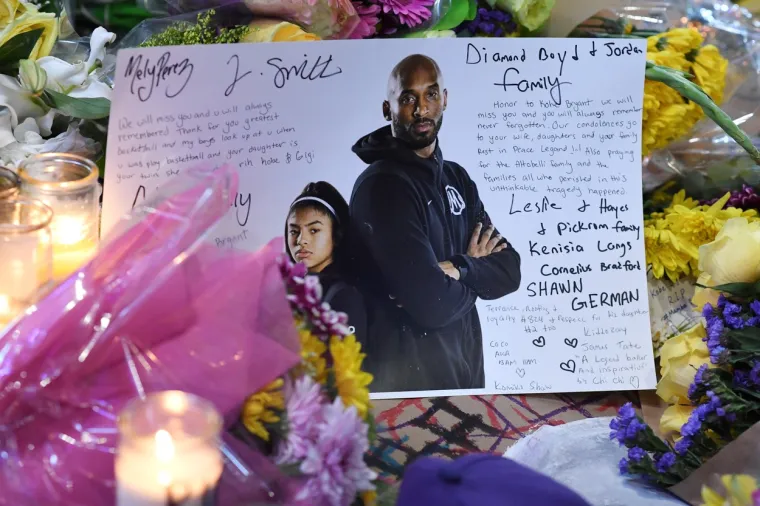 Mely Perez
J. Smitt
We will miss you and u will always
remembered Thank for you greatest
basketball and my boys look up at u when
u was play basketball and your daughter is
your twin she
rih kobe & Gigi
Bryant
Diamond Boyd & Jordan
family
Honor to Kobe Bryant we will
miss you and you will always remember
never forgotten. Our condolances go
to your wife, daughters and your family
Rest in Peace Legend. Also praying
for the Altobelli family and the
families all who perished in this
unthinkable tragedy happened.
Leslie & Hayes
& Pickrom family
Kenisia Langs
Cornelius Bradford
SHAWN
GERMAN
loyalty #824 & Respect to his daughter
Kiddokay
James Tate
"A Legend baller
and inspiration"
by Chi Chi
Coco
Show
R.I.P